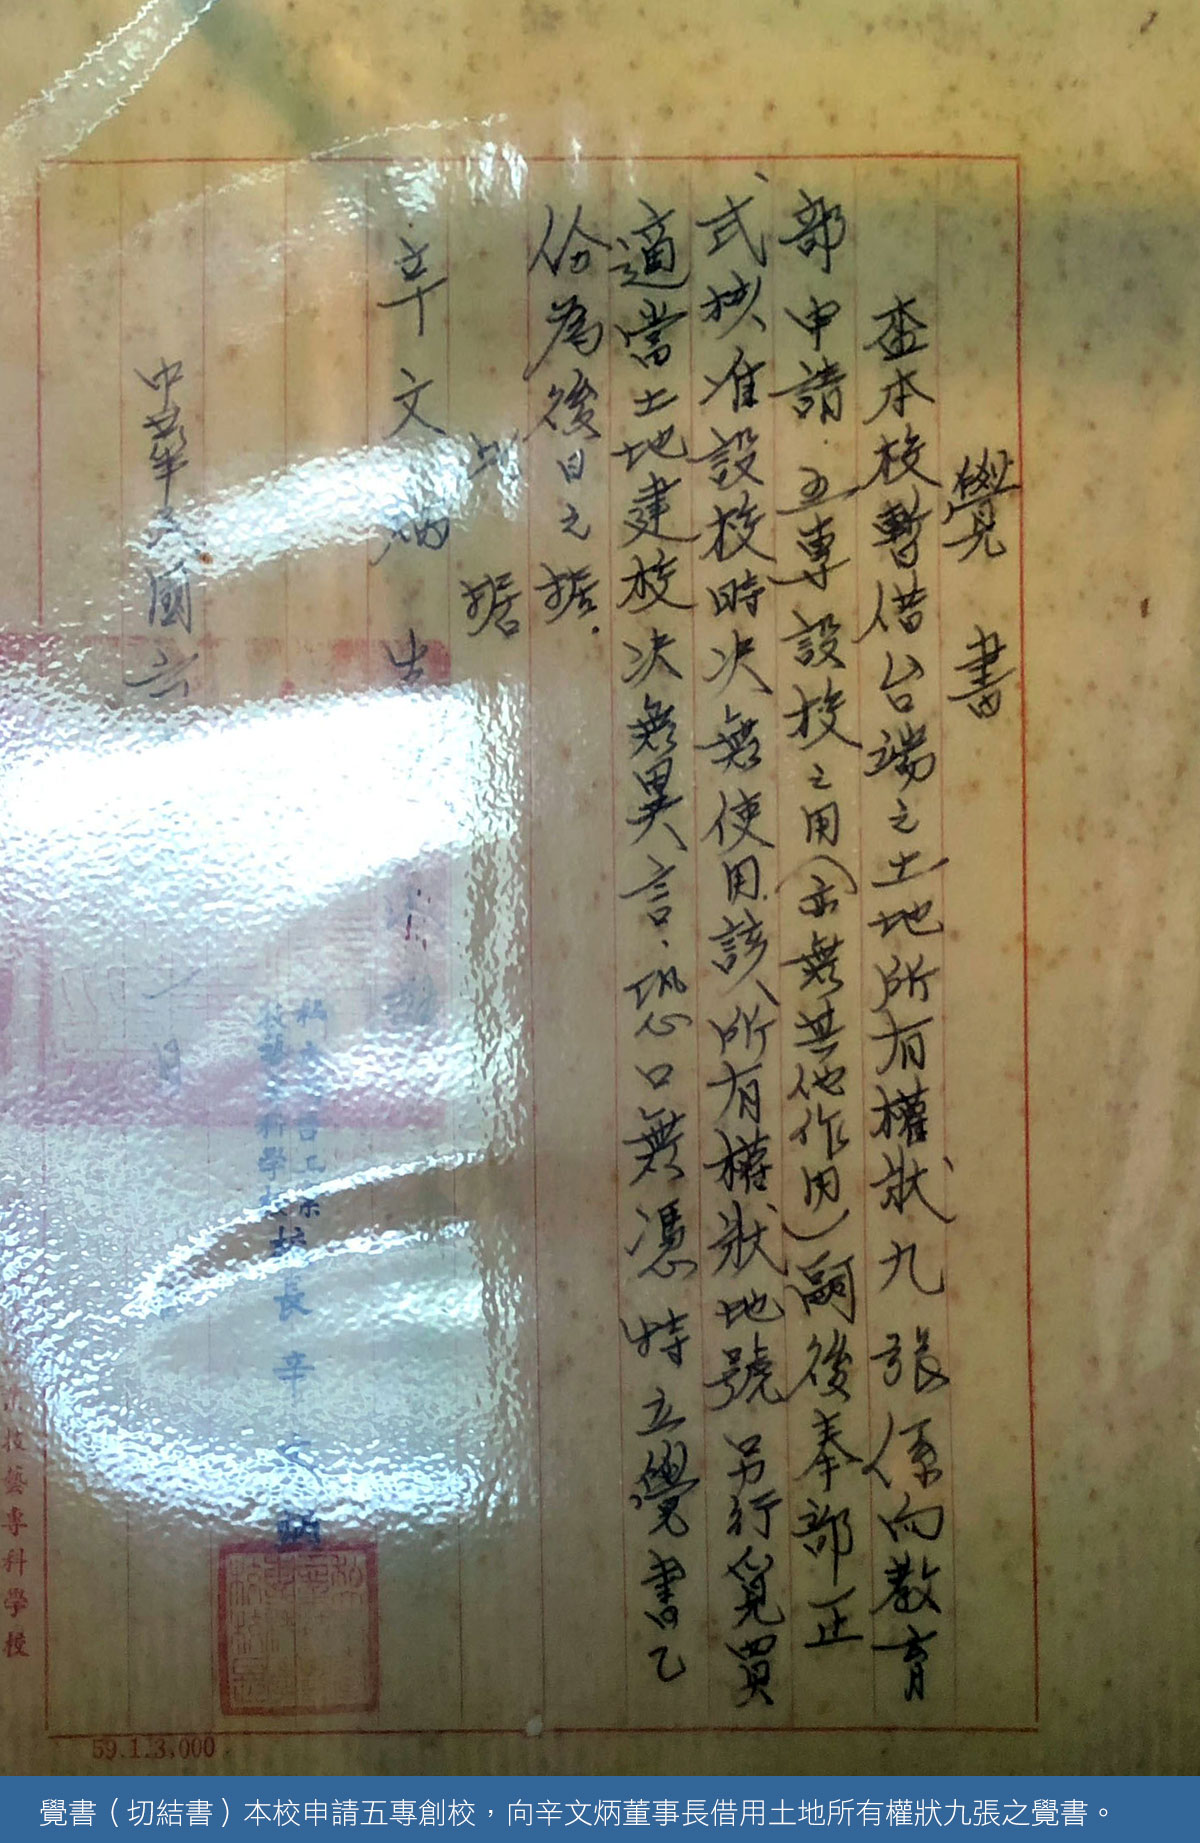 覺書
查本校暫借台端之土地所有權狀九張係向教育
部申請五專設校之用(亦無其他作用)嗣後奉部正
式核准設校時决無使用該所有權狀地號另行覓買
適當土地建校决無異言恐口無憑特立覺書乙
份為後日之據
此據
辛文炳
校長辛文炳
中華民國六
日
技藝專科學校
59.1.3,000
覺書（切結書）本校申請五專創校，向辛文炳董事長借用土地所有權狀九張之覺書。